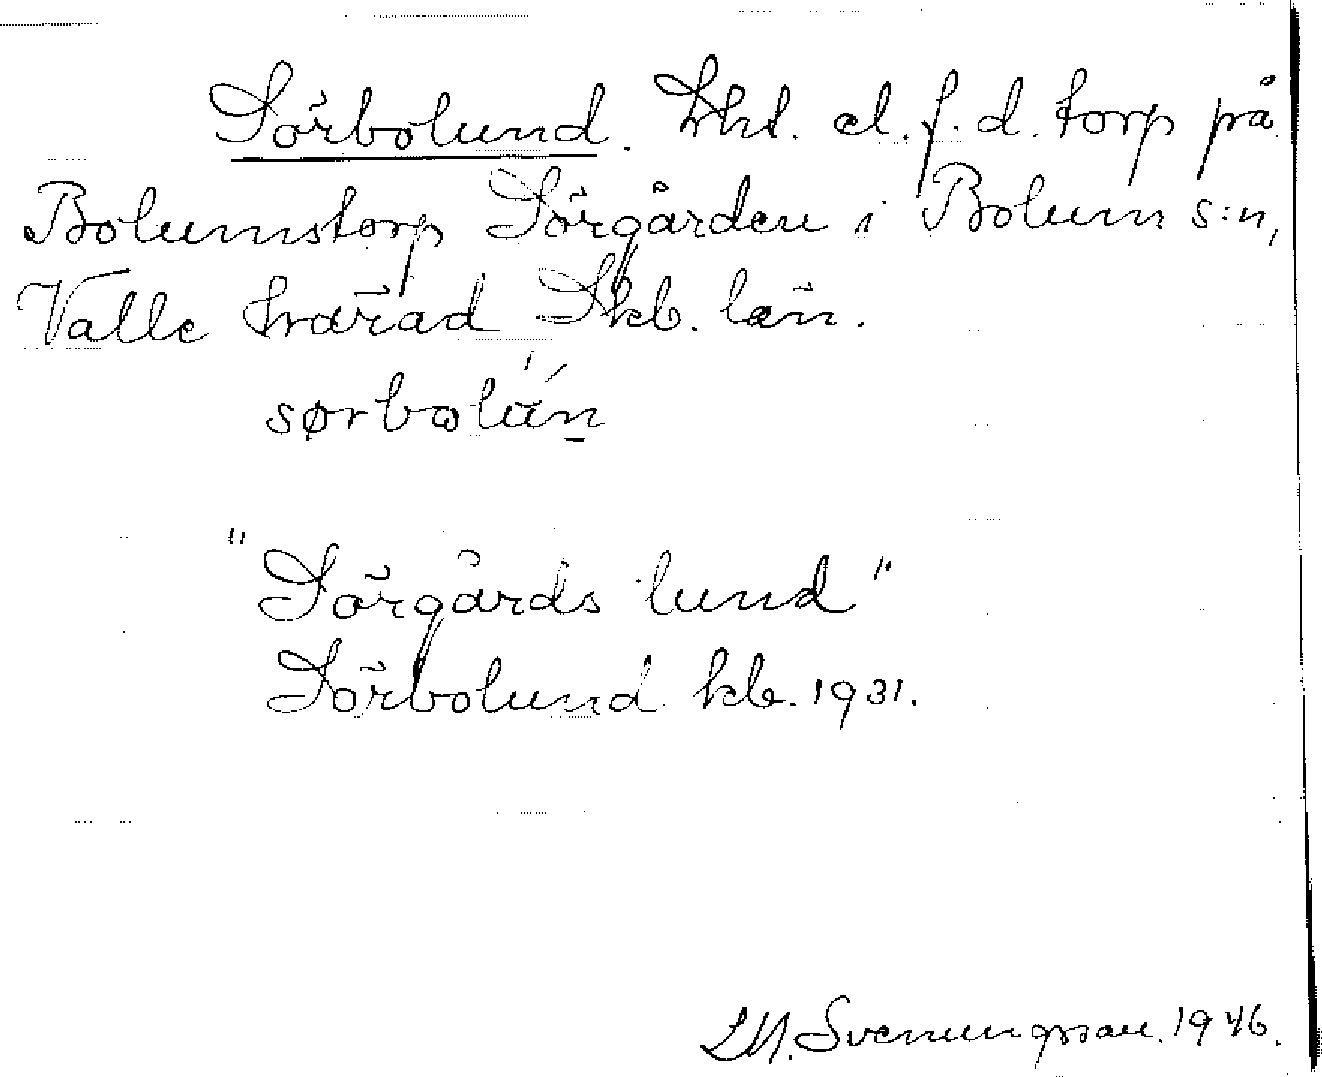 Sörbolund. Lht. el. f. d. torp på
Bolumstorp Sörgården i Bolum s:n,
Valle härad Skb. län.
sørbolún
"Sörgårds lund"
Sörbolund kb. 1931.
Svenungsson. 1946.